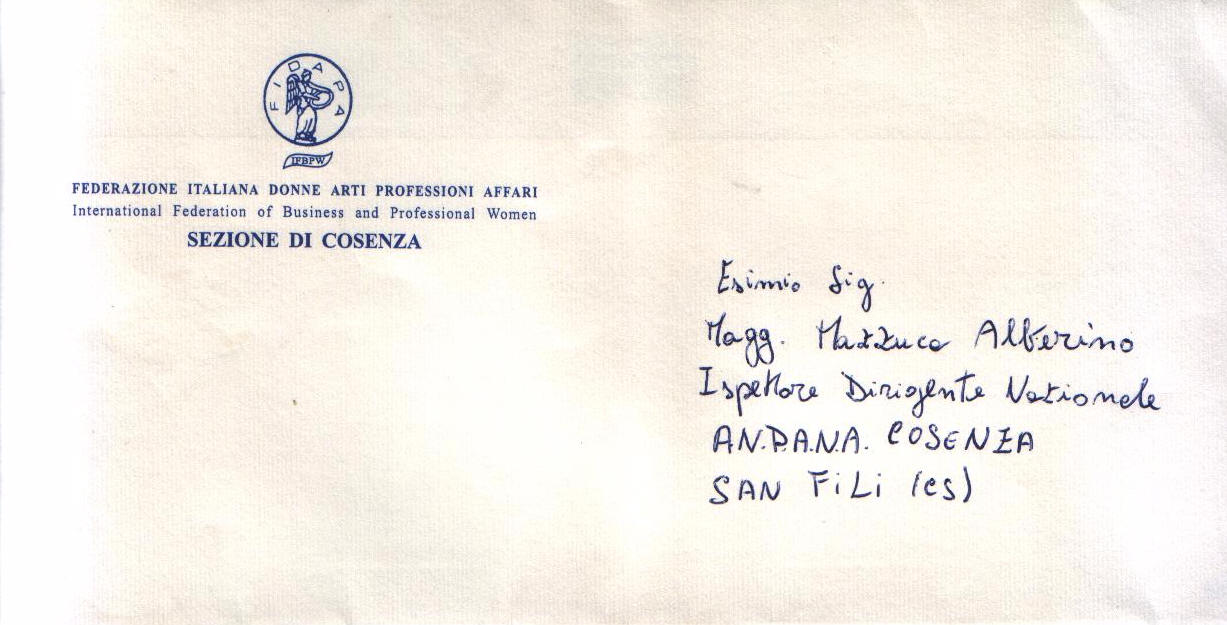 FIDAPA
IFBPW
FEDERAZIONE ITALIANA DONNE ARTI PROFESSIONI AFFARI
International Federation of Business and Professional Women
SEZIONE DI COSENZA
Esimio Sig.
Magg. Mazzuca Alberino
Ispettore Dirigente Nazionale
AN.DA.N.A. COSENZA
SAN FiLi (CS)